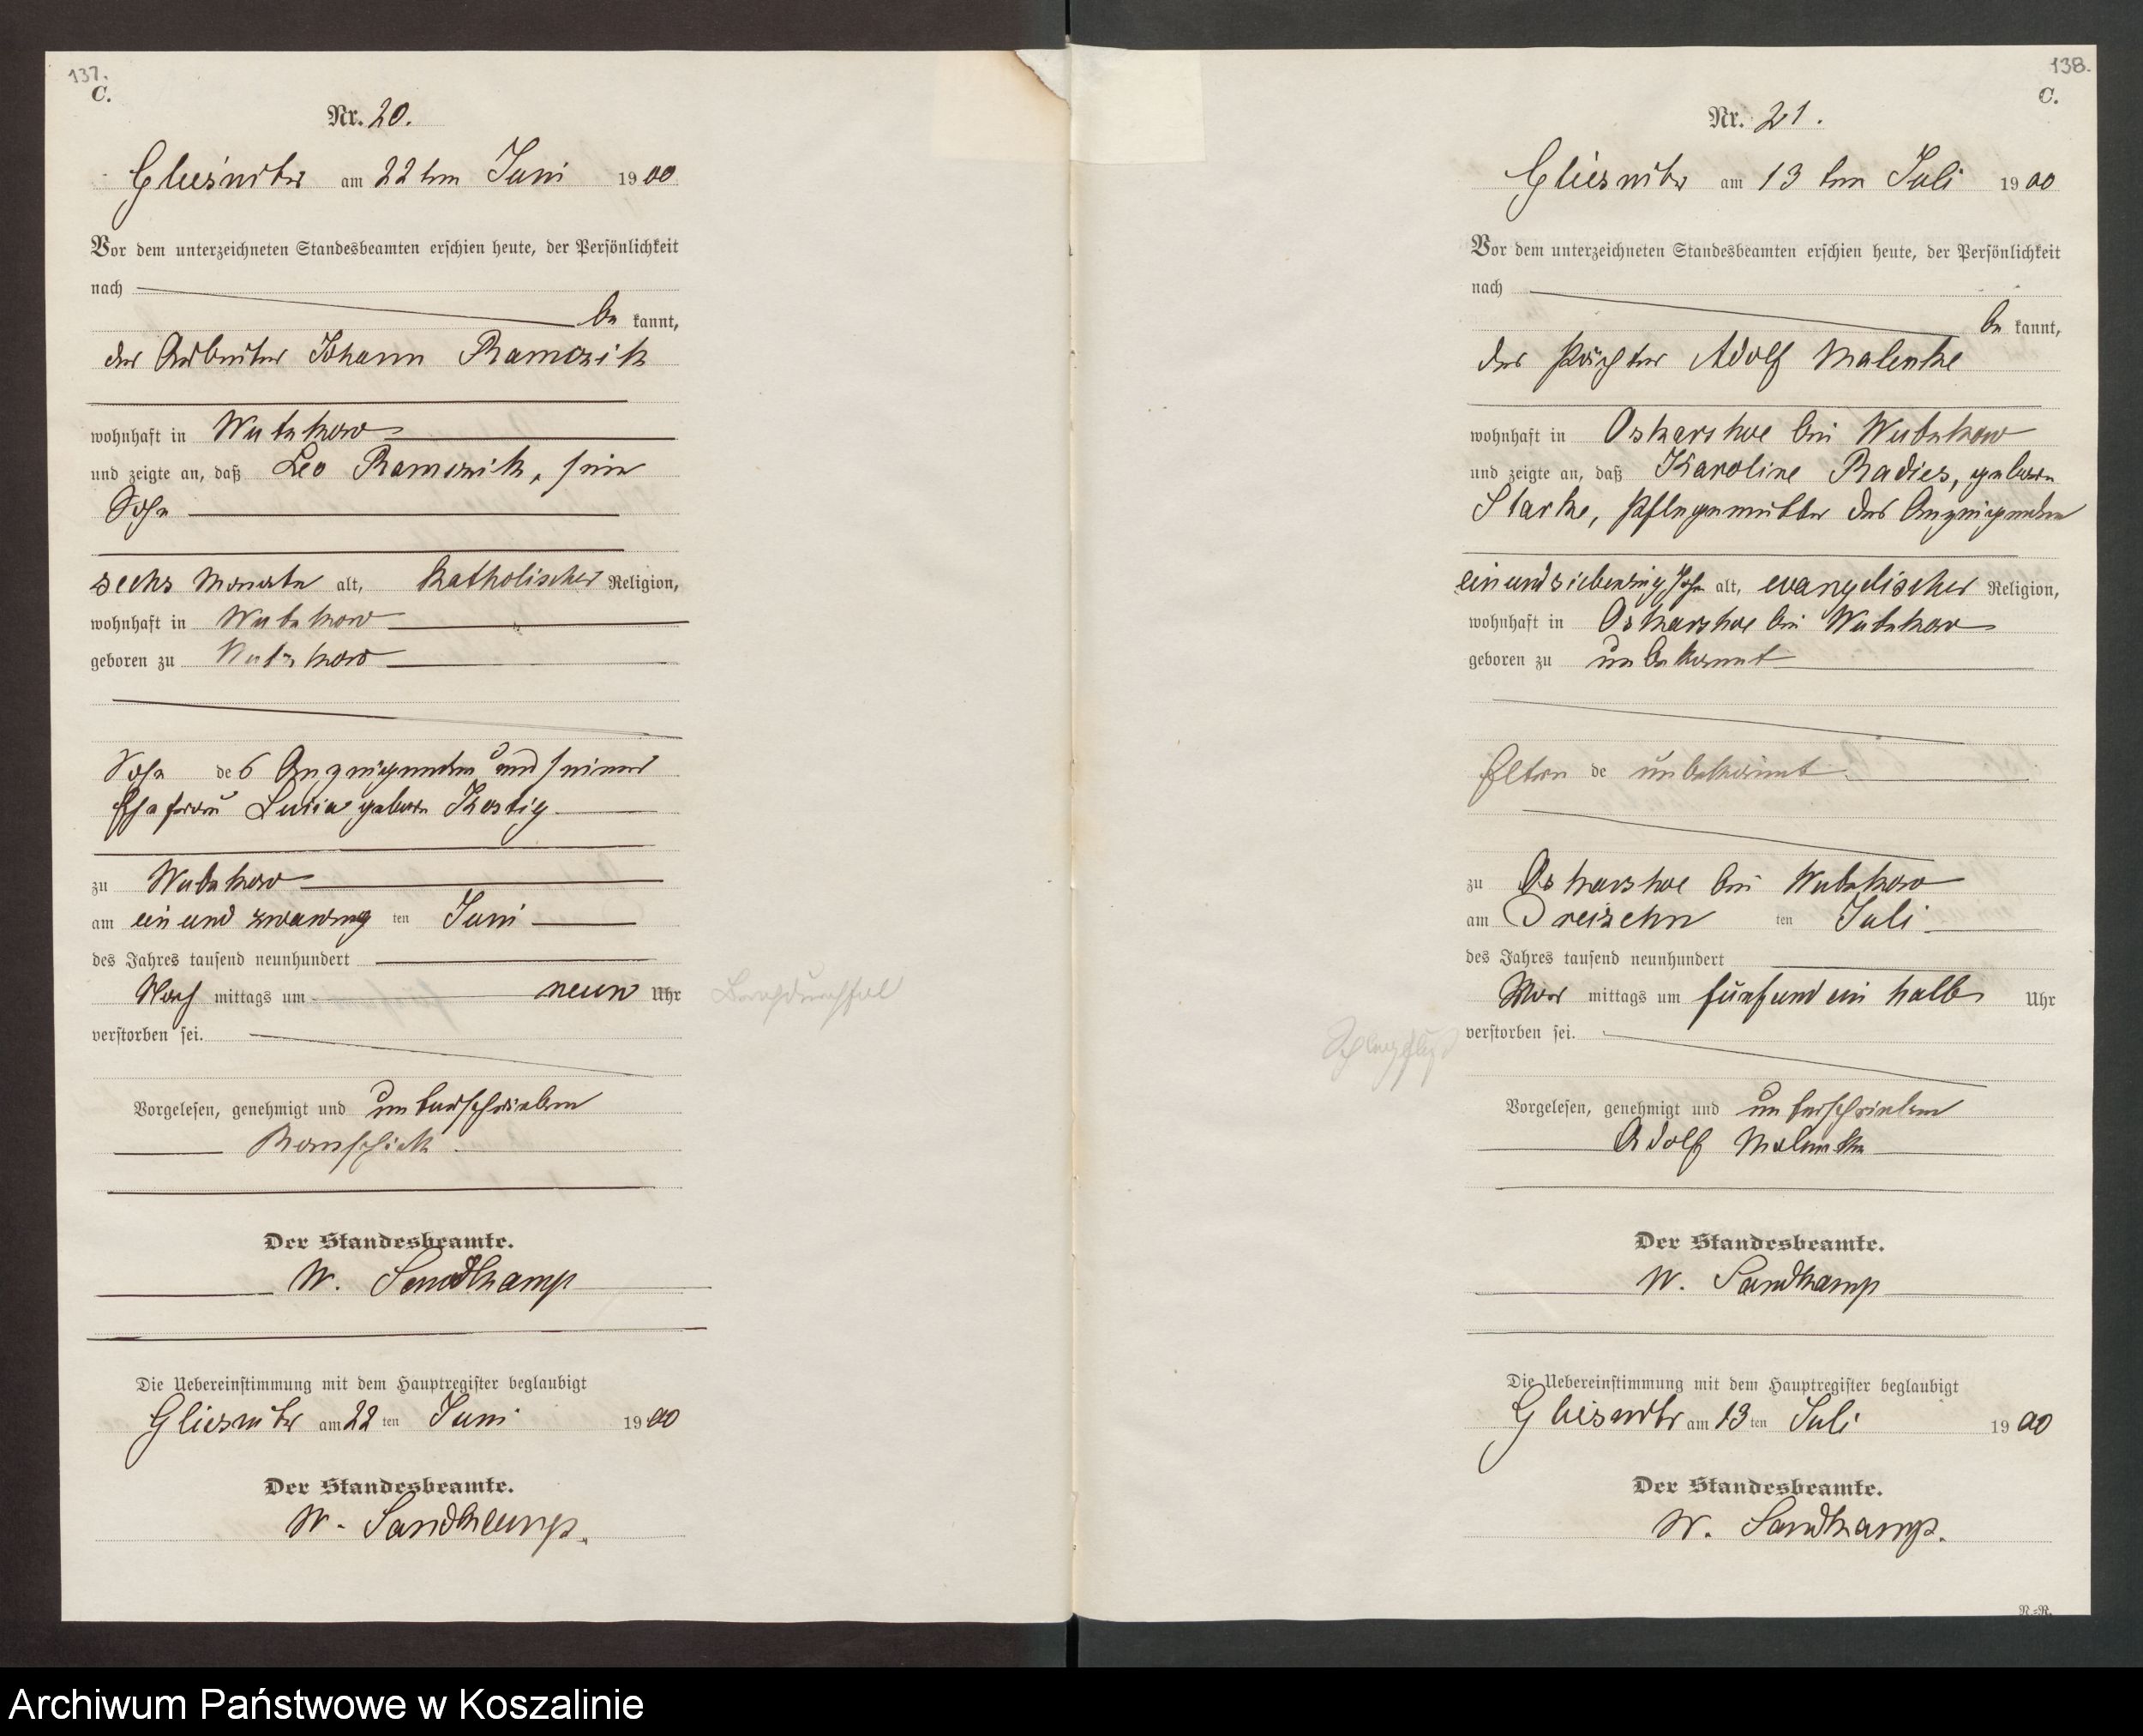 137.
C.
Nr. 20.
Gliesnitz am 22 ten Juni 1900
Vor dem unterzeichneten Standesbeamten erschien heute, der Persönlichkeit
nach
be kannt,
der Arbeiter Johann Ramczik
wohnhaft in Wutzkow
und zeigte an, daß Leo Ramczik, sein
Sohn
sechs Monate alt, katholischer Religion,
wohnhaft in Wutzkow
geboren zu Wutzkow
Sohn des Anzeigenden und seiner
Ehefrau geboren
zu Wutzkow
am ein und zwanzig ten Juni
des Jahres tausend neunhundert
Nach mittags um neun Uhr
verstorben sei.
Vorgelesen, genehmigt und unterschrieben
Ramschick
Der Standesbeamte.
W. Sandkamp
Die Uebereinstimmung mit dem Hauptregister beglaubigt
Gliesnitz am 22 ten Juni 1900
Der Standesbeamte.
W. Sandkamp.
138.
C.
Nr. 21.
Gliesnitz am 13 ten Juli 1900
Vor dem unterzeichneten Standesbeamten erschien heute, der Persönlichkeit
nach
be kannt,
der Pächter Adolf Malenke
wohnhaft in Oskarshoe bei Wutzkow
und zeigte an, daß Karoline Radies, geboren
Starke, Pflegemutter des Anzeigenden
ein und siebenzig Jahr alt, evangelischer Religion,
wohnhaft in Oskarshoe bei Wutzkow
geboren zu unbekannt
Eltern de unbekannt
zu Oskarshoe bei Wutzkow
am Dreizehn ten Juli
des Jahres tausend neunhundert
Vor mittags um fünf und ein halb Uhr
verstorben sei.
Vorgelesen, genehmigt und unterschrieben
Adolf Malenke
Der Standesbeamte.
W. Sandkamp
Die Uebereinstimmung mit dem Hauptregister beglaubigt
Gliesnitz am 13 ten Juli 1900
Der Standesbeamte.
W. Sandkamp.
N.=R.
Archiwum Państwowe w Koszalinie